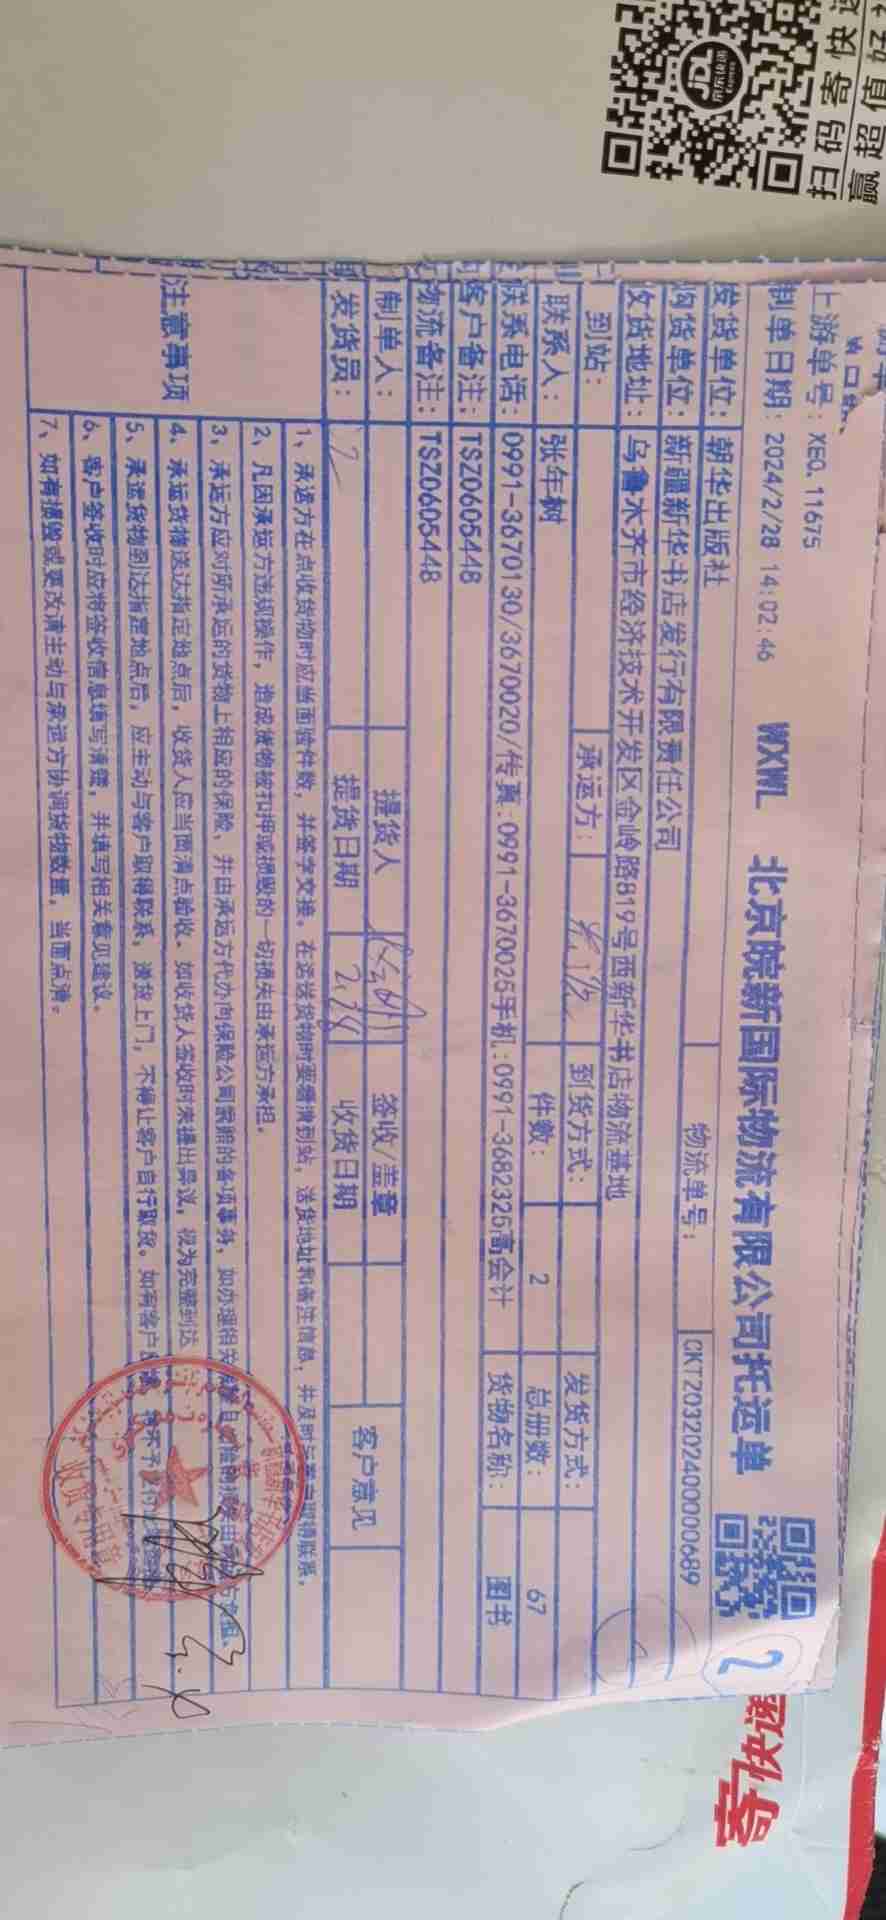 JDL
京东快递
扫码寄快递
赢超值好礼
上游单号：XEQ.11675
制单日期：2024/2/28 14:02:46
WXWL 北京皖新国际物流有限公司托运单
2
发货单位：朝华出版社
物流单号：CKT203202400000689
购货单位：新疆新华书店发行有限责任公司
收货地址：乌鲁木齐市经济技术开发区金岭路819号西新华书店物流基地
到站： 承运方： 到货方式： 发货方式：
联系人：张年树 件数：2 总册数：67
联系电话：0991-3670130/3670020/传真:0991-3670025手机:0991-3682325高会计 货物名称：图书
客户备注：TSZ0605448
物流备注：TSZ0605448
制单人： 提货人 签收/盖章 客户意见
发货员： 提货日期 2.28 收货日期
注意事项
1、承运方在点收货物时应当面验件数，并签字交接。在运送货物时要看清到站，送货地址和备注信息，并及时与客户取得联系。
2、凡因承运方违规操作，造成货物被扣押或损毁的一切损失由承运方承担。
3、承运方应对所承运的货物上相应的保险，并由承运方代办向保险公司索赔的各项事务，如办理相关
4、承运货物送达指定地点后，收货人应当面清点验收、如收货人签收时未提出异议，视为完整到达
5、承运货物到达指定地点后，应主动与客户取得联系，送货上门，不得让客户自行取货。如有客户
6、客户签收时应将签收信息填写清楚，并填写相关意见建议。
7、如有损毁或更改请主动与承运方协调货物数量，当面点清。
收货专用章
寄快递